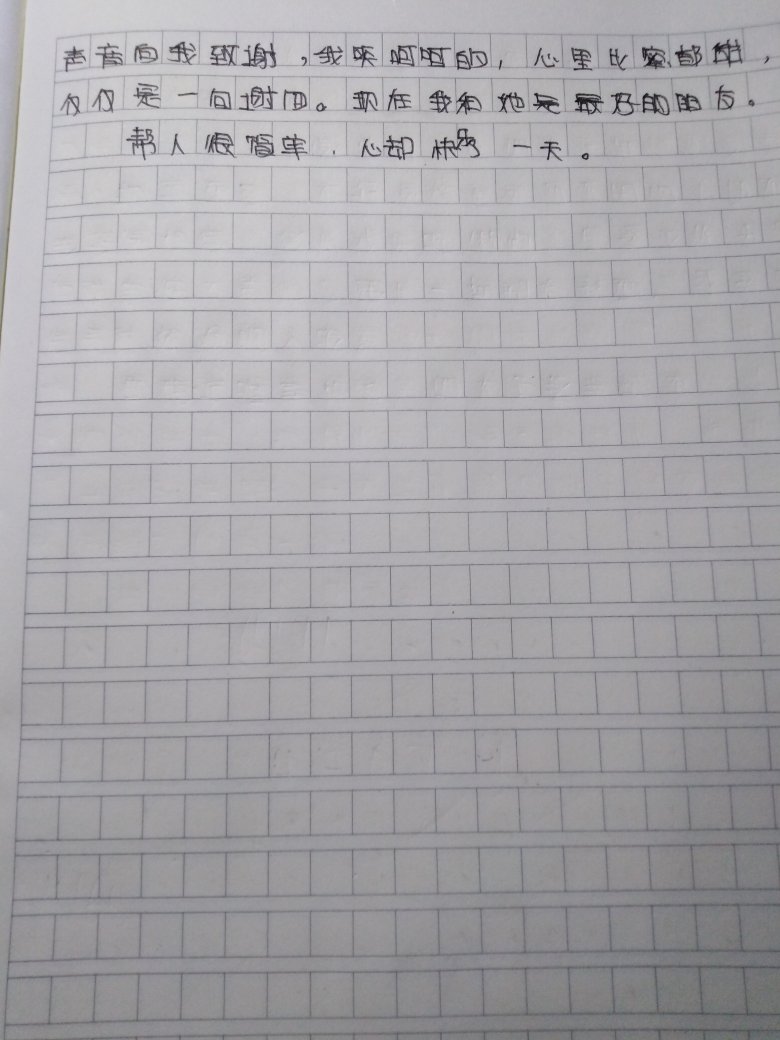 声音向我致谢，我笑呵呵的，心里比蜜都甜，
仅仅是一句谢回。现在我和她是最好的朋友。
帮人很简单，心却快乐一天。